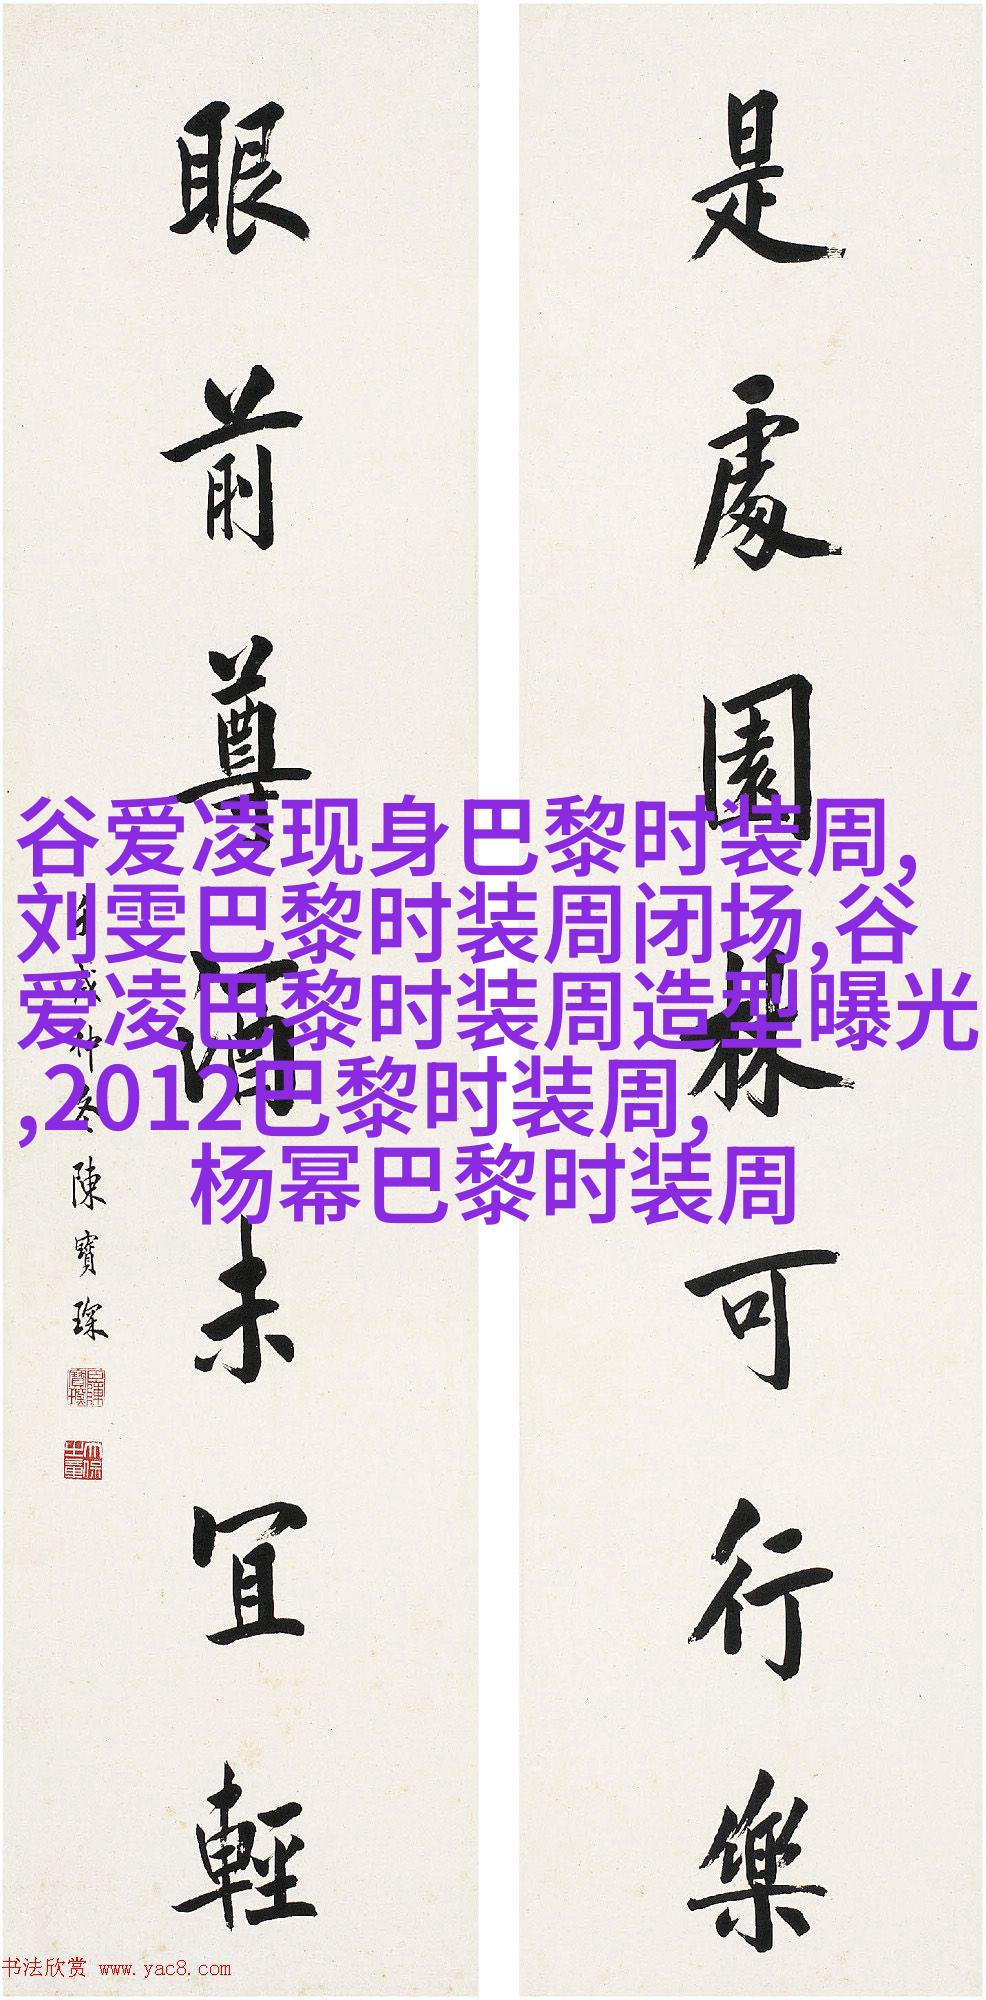 是處園林可行樂
眼前尊酒未宜輕
壬戌仲冬陳寶琛
谷爱凌现身巴黎时装周,
刘雯巴黎时装周闭场,谷
爱凌巴黎时装周造型曝光
,2012巴黎时装周,
杨幂巴黎时装周
书法欣赏 www.yac8.com